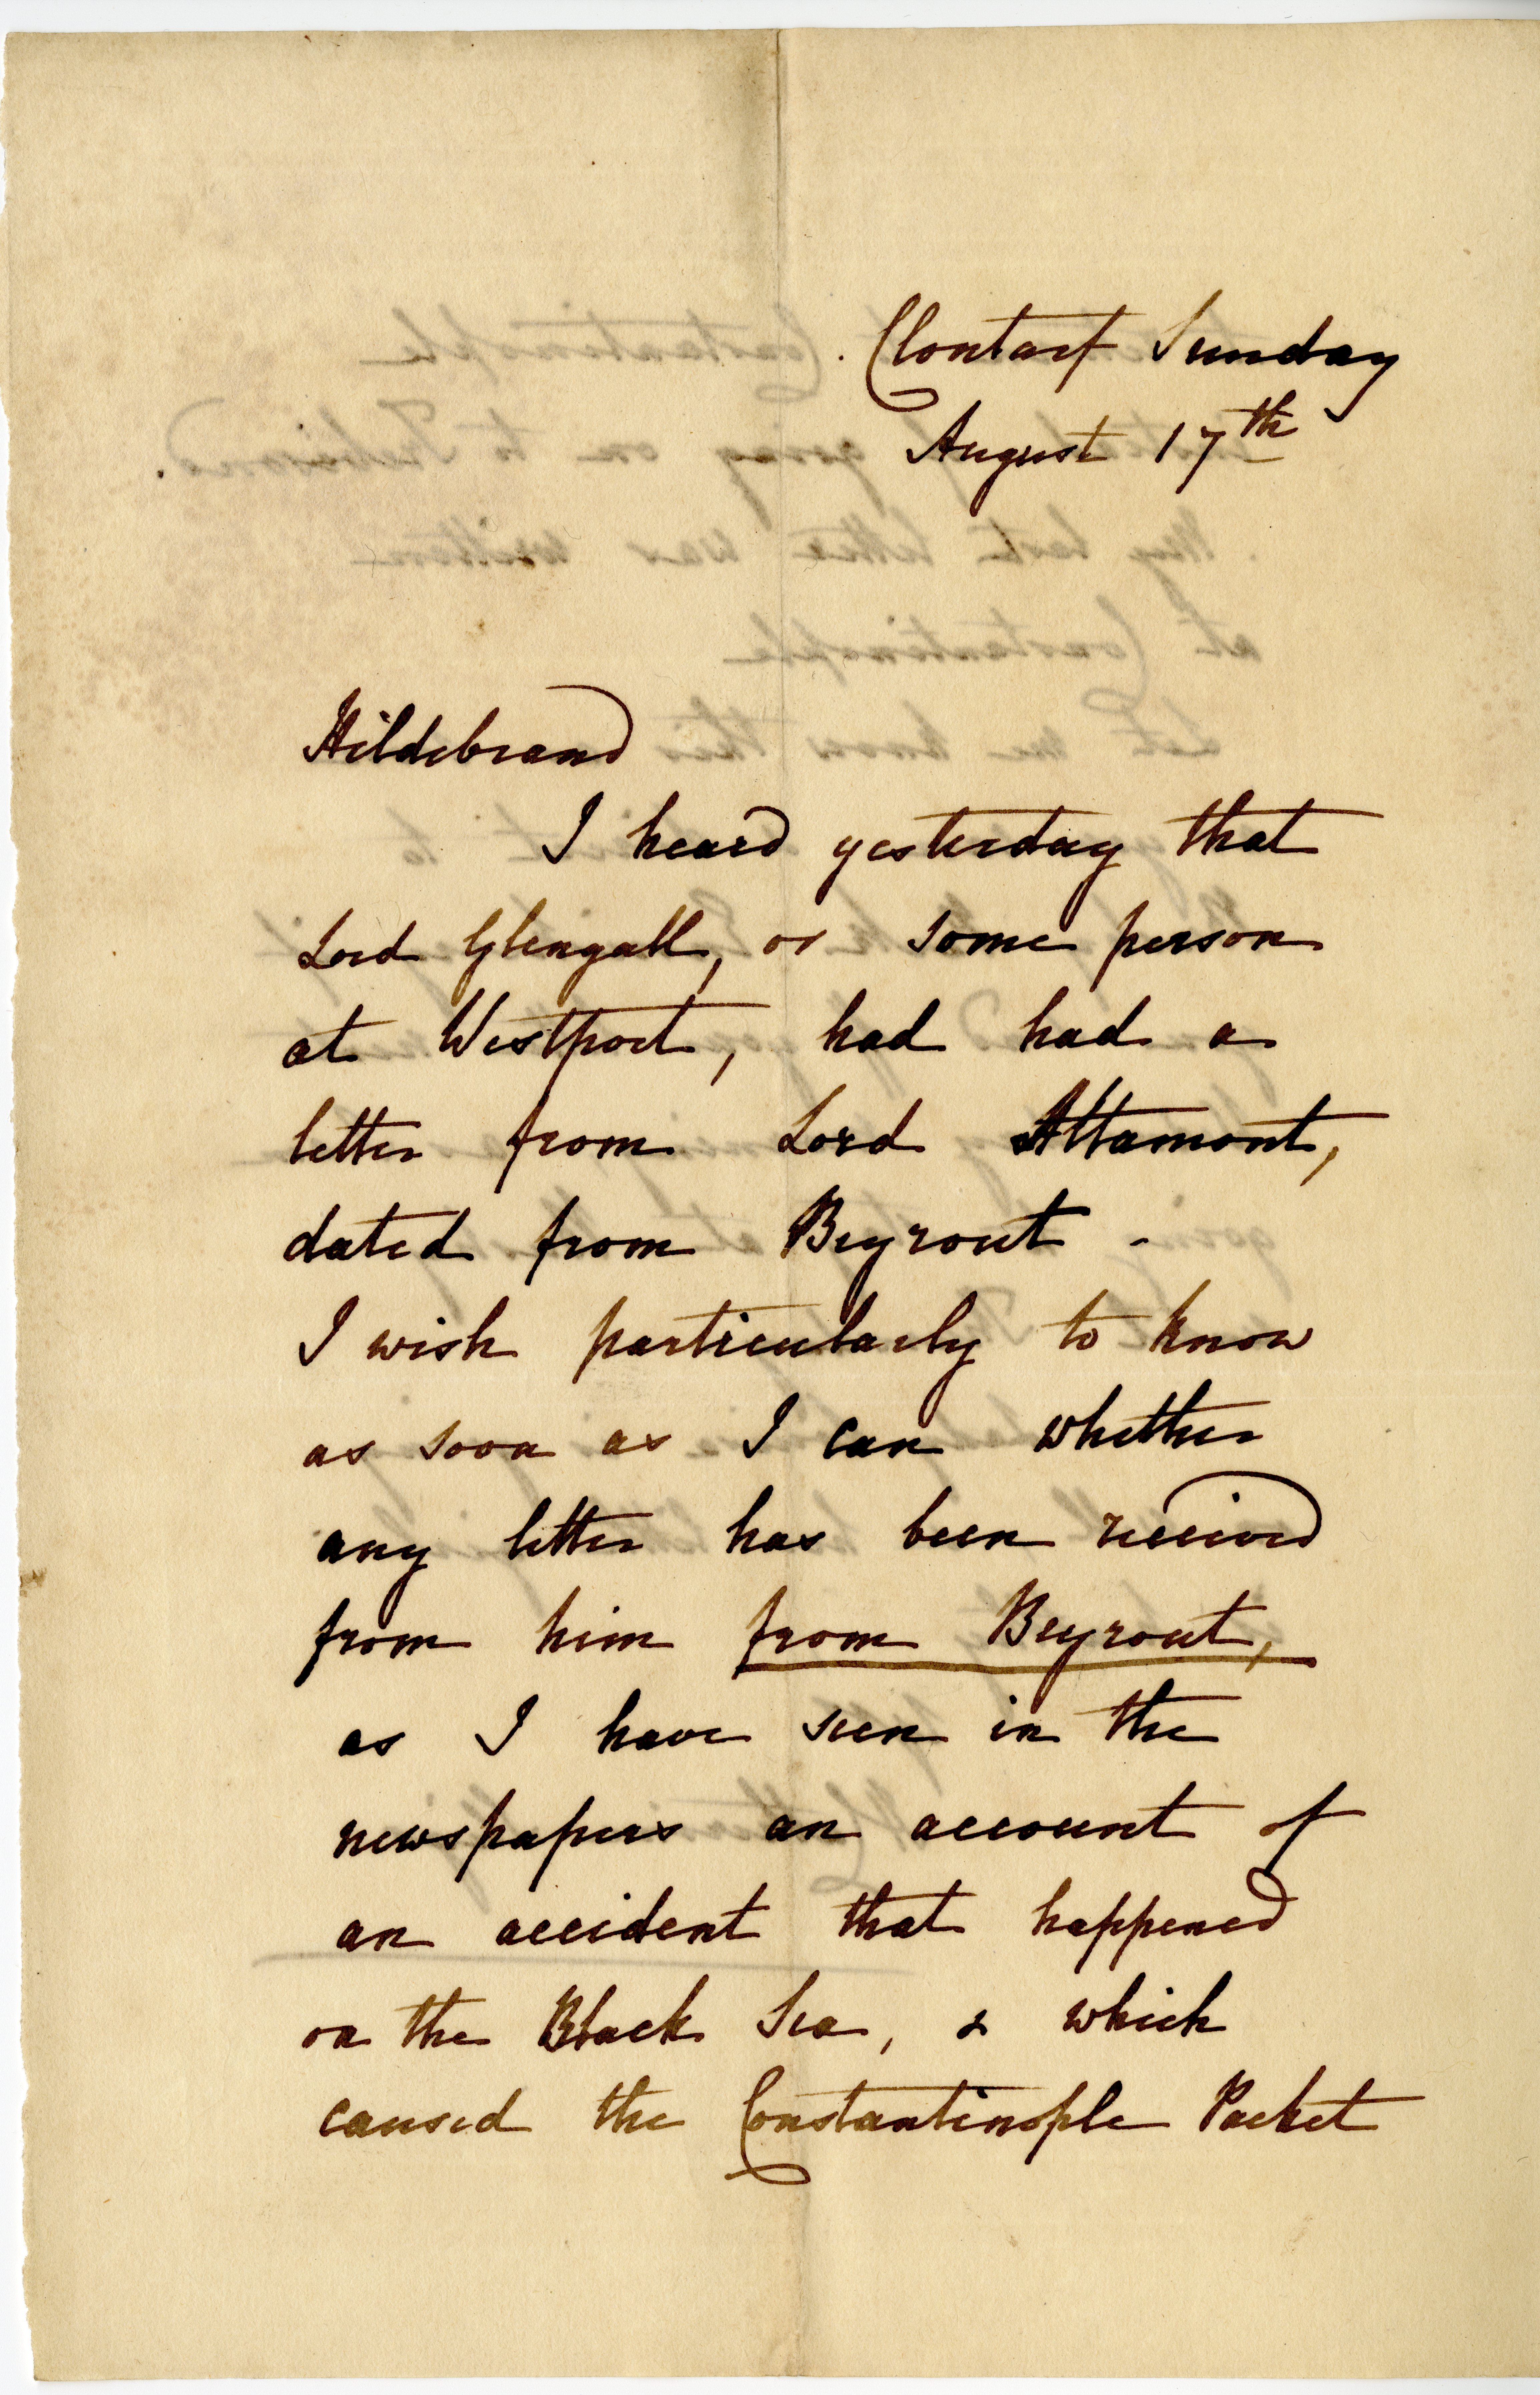 Clontarf Sunday
August 17th
Hildebrand
I heard yesterday that
Lord Glengall, or some person
at Westport, had had a
letter from Lord Altamont,
dated from Beyrout -
I wish particularly to know
as soon as I can whether
any letter has been received
from him from Beyrout,
as I have seen in the
newspapers an account of
an accident that happened
on the Black Sea, & which
caused the Constantinople Packet